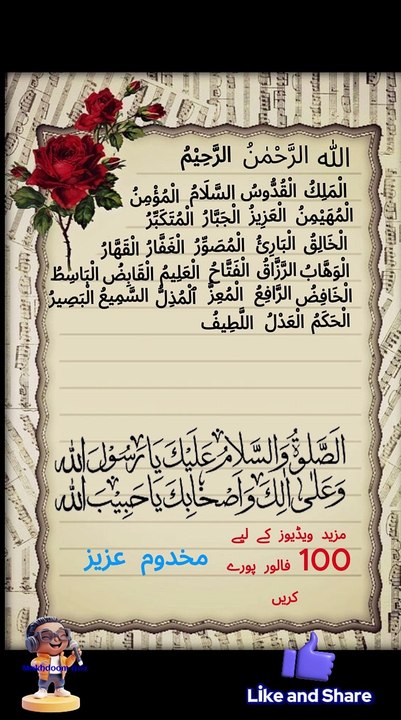 الله الرَّحْمٰنُ الرَّحِيْمُ
الْمَلِكُ الْقُدُّوسُ السَّلَامُ الْمُؤْمِنُ
الْمُهَيْمِنُ الْعَزِيزُ الْجَبَّارُ الْمُتَكَبِّرُ
الْخَالِقُ الْبَارِئُ الْمُصَوِّرُ الْغَفَّارُ الْقَهَّارُ
الْوَهَّابُ الرَّزَّاقُ الْفَتَّاحُ الْعَلِيمُ الْقَابِضُ الْبَاسِطُ
الْخَافِضُ الرَّافِعُ الْمُعِزُّ ٱلْمُذِلُّ السَّمِيعُ الْبَصِيرُ
الْحَكَمُ الْعَدْلُ اللَّطِيفُ
اَلصَّلٰوةُ وَالسَّلَامُ عَلَيْكَ يَا رَسُوْلَ الله
وَعَلٰى اٰلِكَ وَاَصْحَابِكَ يَا حَبِيْبَ الله
مزید ویڈیوز کے لیے
100 فالور پورے مخدوم عزیز
کریں
Like and Share